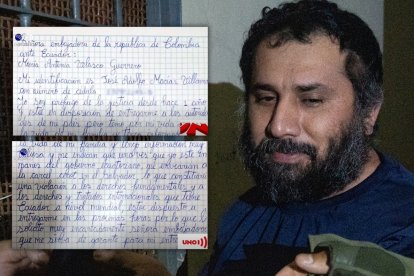 Señora embajadora de la republica de Colombia
ante Ecuador:
María Antonia Velasco Guerrero
Mi identificación es José Adolfo Macías Villamar
con numero de cédula
Yo soy profugo de la justicia desde hace 1 año
y esto en disposición de entregarme a las autorida
des de mi país pero temo por mi vida
vida de mi familia y tengo información muy
me indican que una vez que yo este en
manos del gobierno Ecuatoriano, me enviarian a
la carcel cecot en el Salvador, lo que constituiria
una violación a los derechos fundamentales y a
los derechos y tratados internacionales que tiene
Ecuador a nivel mundial, estoy dispuesto a
entregarme en las proximas horas por lo que le
solicito muy encarecidamente señora embajadora
que me sirva de garante para mi
UNO